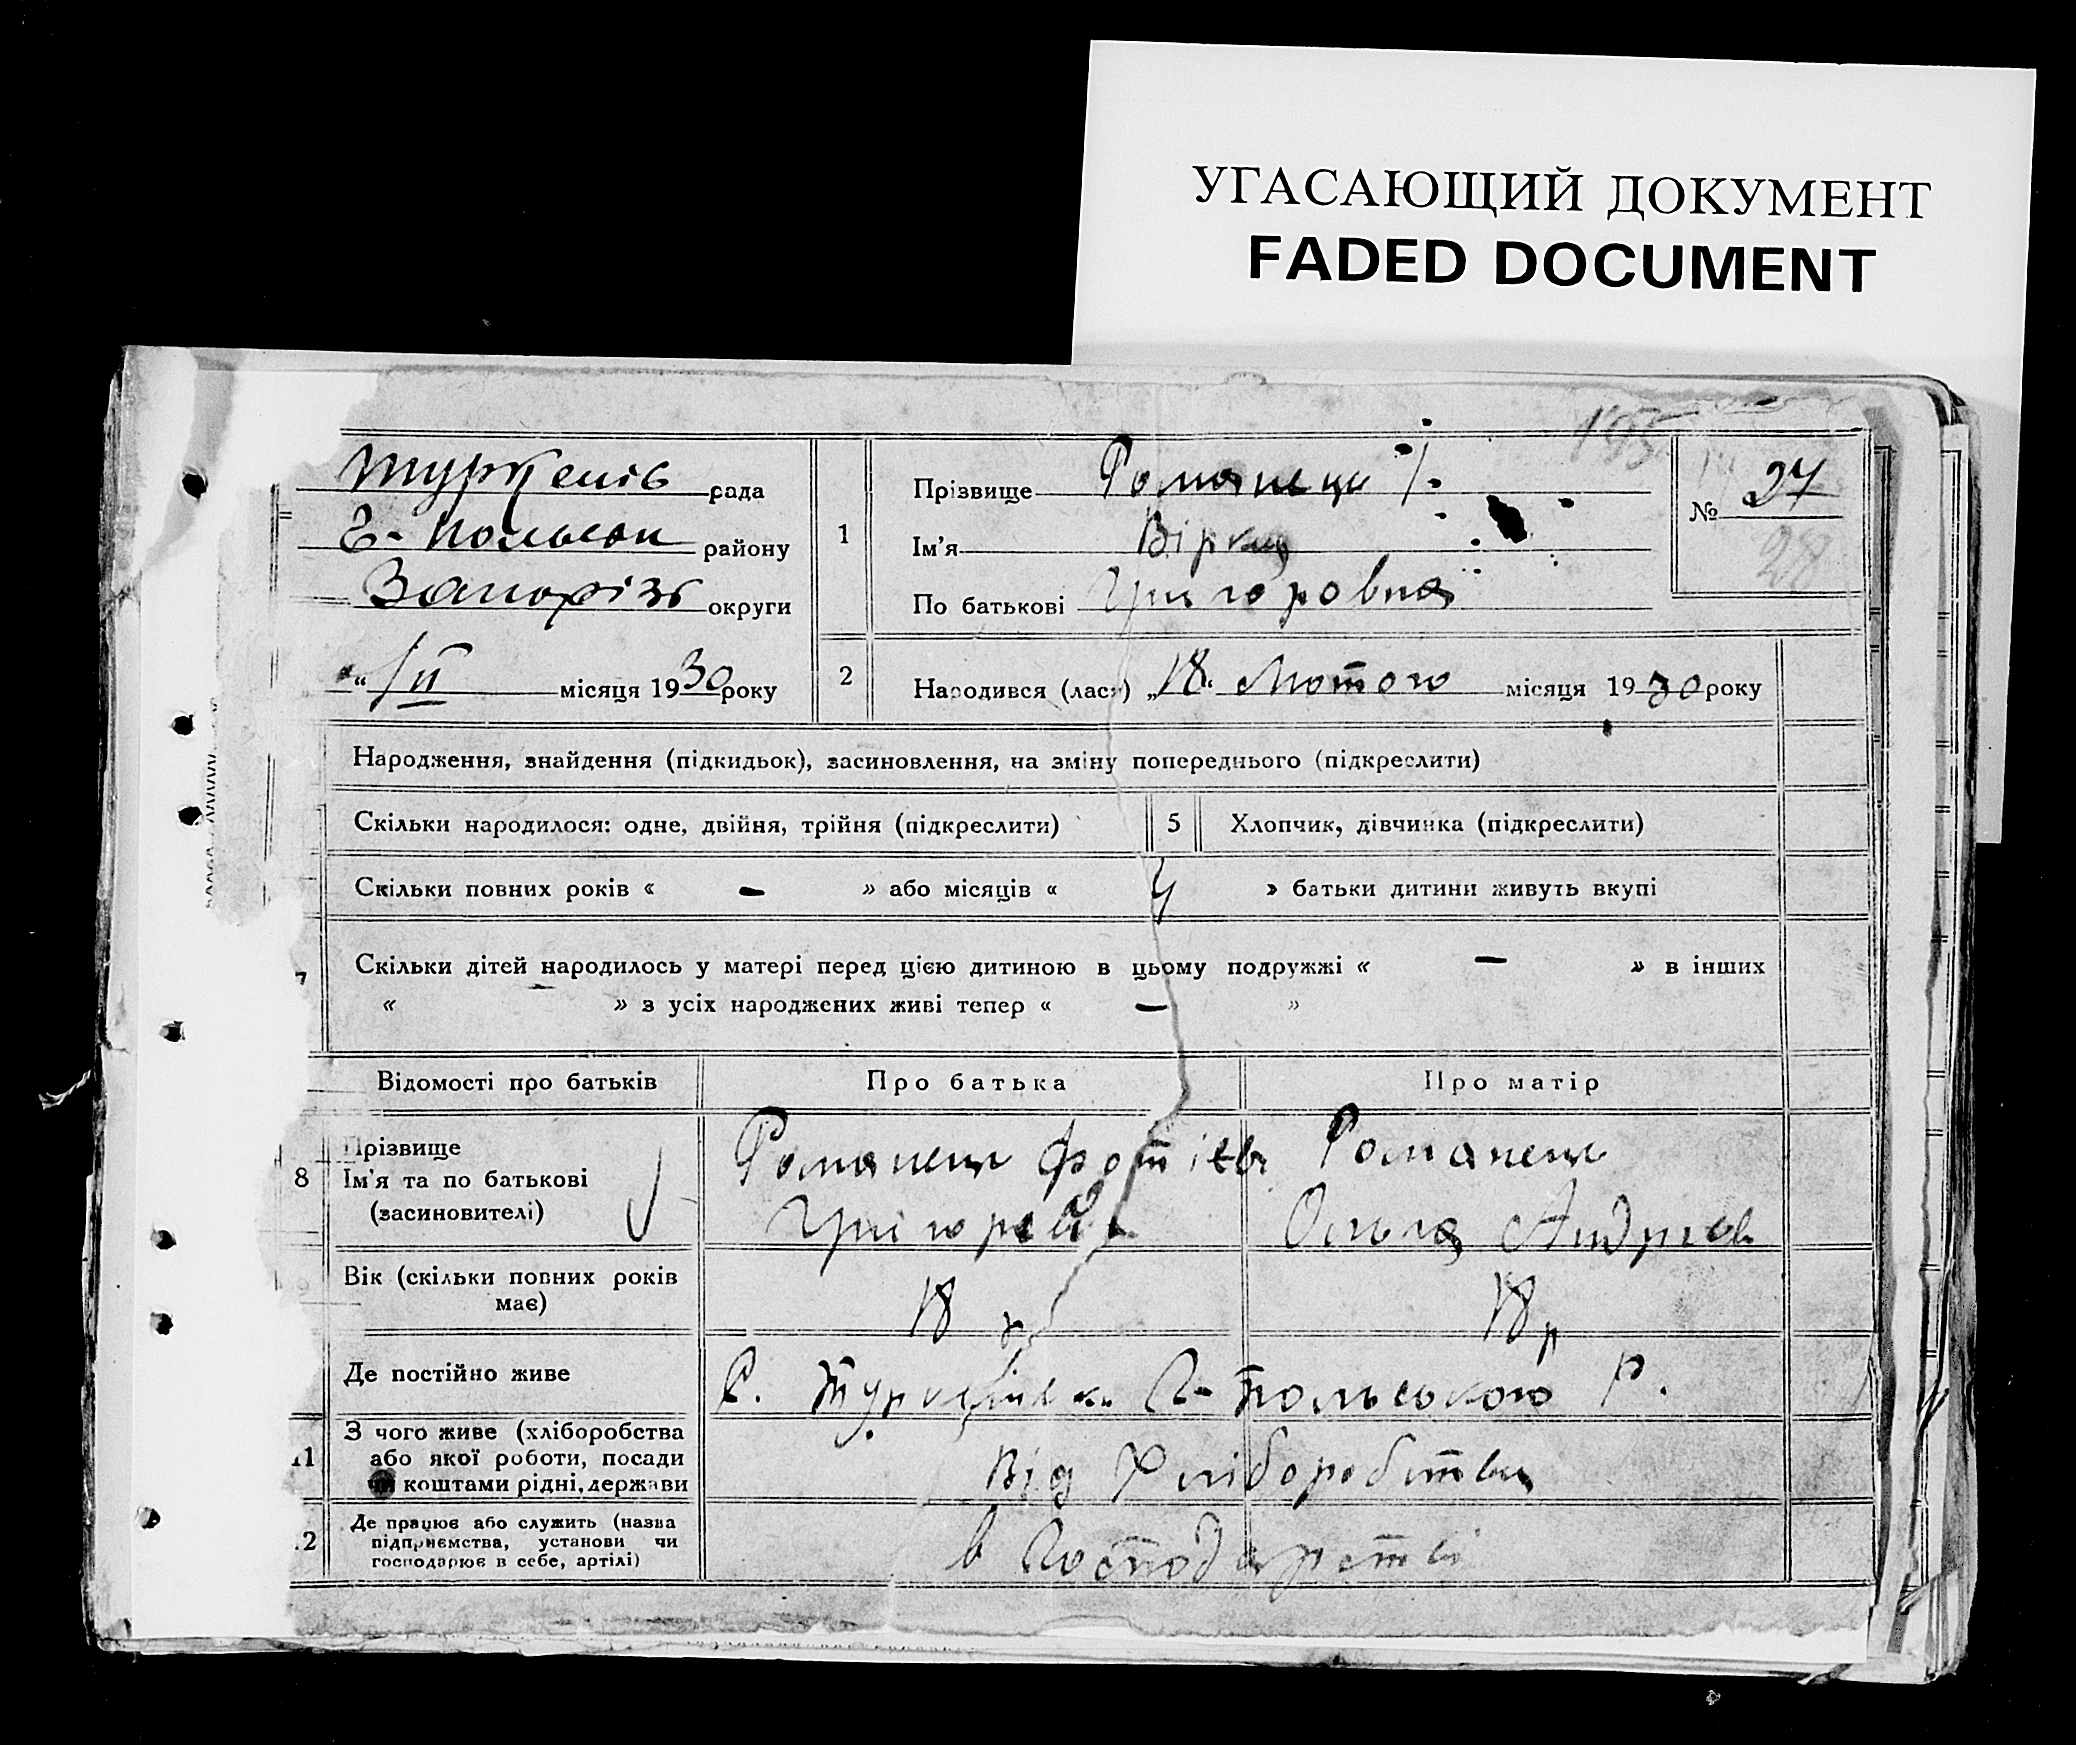 УГАСАЮЩИЙ ДОКУМЕНТ
FADED DOCUMENT
195
рада
району
Запорізь округи
Прізвище Романець
Ім’я Вірка
По батькові Григоровна
1
№ 27
28
“ 1/II місяця 1930 року
2
Народився (лася) „18“ Лютого місяця 1930 року
Народження, знайдення (підкидьок), засиновлення, на зміну попереднього (підкреслити)
Скільки народилося: одне, двійня, трійня (підкреслити)
5 Хлопчик, дівчинка (підкреслити)
Скільки повних років « – » або місяців « 4 » батьки дитини живуть вкупі
7 Скільки дітей народилось у матері перед цією дитиною в цьому подружжі « – » в інших
« – » з усіх народжених живі тепер « – »
Відомості про батьків
Про батька
Про матір
8
Прізвище
Ім’я та по батькові
(засновителі)
Романець Фотіев
Григорий
Романець
Ольга Андриев
Вік (скільки повних років
має)
18 р
18 р
Де постійно живе
С. Г-Польского Р.
11 З чого живе (хліборобства
або якої роботи, посади
чи коштами рідні, держави
Від Хліборобства
12 Де працює або служить (назва
підприємства, установи чи
господарює в себе, артілі)
в Господарстві